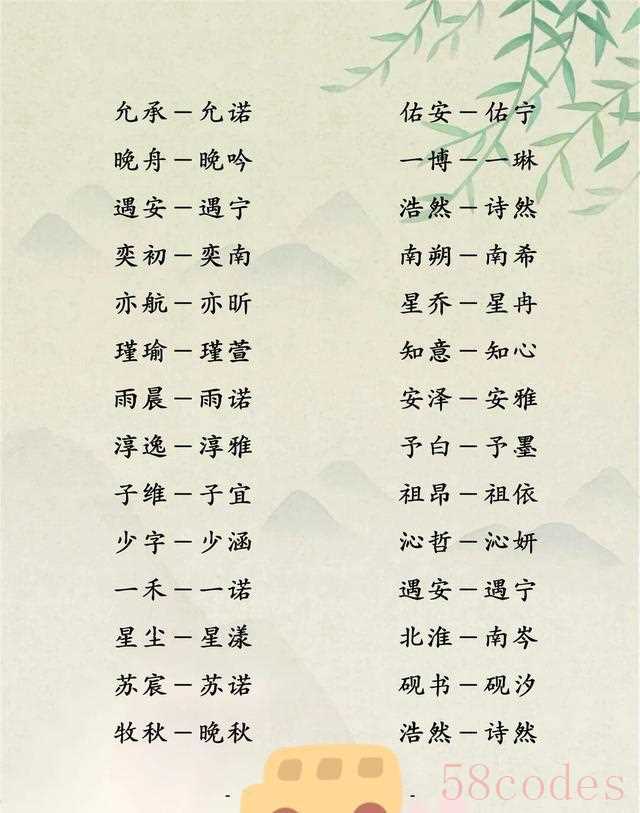 允承－允诺
晚舟－晚吟
遇安－遇宁
奕初－奕南
亦航－亦昕
瑾瑜－瑾萱
雨晨－雨诺
淳逸－淳雅
子维－子宜
少字－少涵
一禾－一诺
星尘－星漾
苏宸－苏诺
牧秋－晚秋
佑安－佑宁
一博－一琳
浩然－诗然
南朔－南希
星乔－星冉
知意－知心
安泽－安雅
予白－予墨
祖昂－祖依
沁哲－沁妍
遇安－遇宁
北淮－南岑
砚书－砚汐
浩然－诗然
58codes